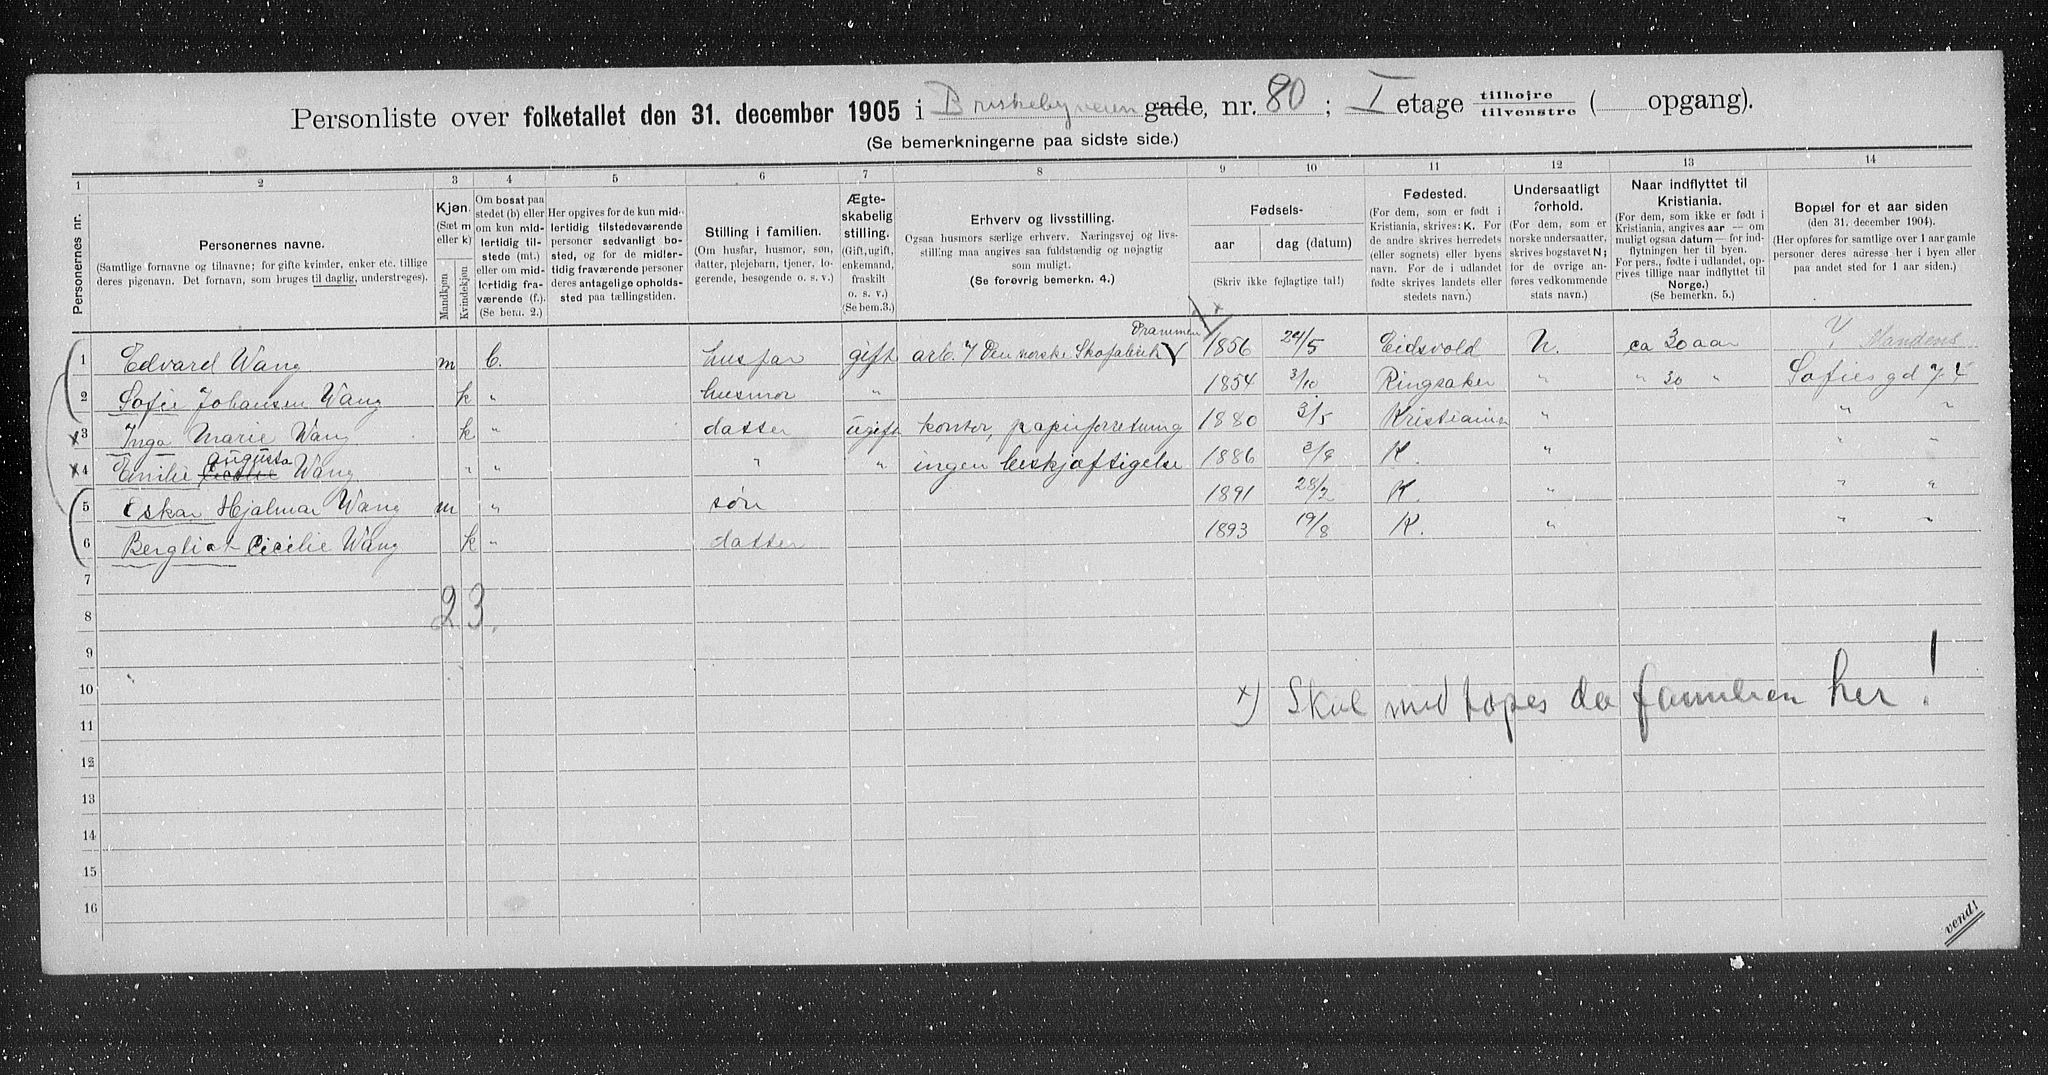 Personliste over folketallet den 31. december 1905 i Briskebyveien gade, nr. 80 ; I etage tilhøjre tilvenstre ( opgang).
(Se bemerkningerne paa sidste side.)
1 2 3 4 5 6 7 8 9 10 11 12 13 14
Personernes nr.
Personernes navne.
(Samtlige fornavne og tilnavne; for gifte kvinder, enker etc. tillige
deres pigenavn. Det fornavn, som bruges til daglig, understreges).
Kjøn.
(Sæt m
eller k)
Mandkjøn
Kvindekjøn
Om bosat paa
stedet (b) eller
om kun mid-
lertidig til-
stede (mt.)
eller om mid-
lertidig fra-
værende (f.).
(Se bem. 2.)
Her opgives for de kun mid-
lertidig tilstedeværende
personer sedvanligt bo-
sted, og for de midler-
tidig fraværende personer
deres antagelige opholds-
sted paa tællingstiden.
Stilling i familien.
(Om husfar, husmor, søn,
datter, plejebarn, tjener, lo-
gerende, besøgende o. s. v.).
Ægte-
skabelig
stilling.
(Gift, ugift,
enkemand,
fraskilt
o. s. v.)
(Se bem.3.)
Erhverv og livsstilling.
Ogsaa husmors særlige erhverv. Næringsvej og livs-
stilling maa angives saa fuldstændig og nøjagtig
som muligt.
(Se forøvrig bemerkn. 4.)
Fødsels-
aar dag (datum)
(Skriv ikke fejlagtige tal!)
Fødested.
(For dem, som er født i
Kristiania, skrives: K. For
de andre skrives herredets
(eller sognets) eller byens
navn. For de i udlandet
fødte skrives landets eller
stedets navn.)
Undersaatligt
forhold.
(For dem, som er
norske undersaatter,
skrives bogstavet N;
for de øvrige an-
føres vedkommende
stats navn.)
Naar indflyttet til
Kristiania.
(For dem, som ikke er født i
Kristiania, angives aar — om
muligt ogsaa datum — for ind-
flytningen her til byen.
For pers., fødte i udlandet, op-
gives tillige naar indflyttet til
Norge.)
(Se bemerkn. 5.)
Bopæl for et aar siden
(den 31. december 1904).
(Her opføres for samtlige over 1 aar gamle
personer deres adresse her i byen eller
paa andet sted for 1 aar siden.)
Drammen x
1 Edvard Wang m b. husfar gift arb. v Den norske Skofabrik 1856 24/5 Eidsvold N. ca 30 aar
2 Sofie Johansen Wang k " husmor " 1854 3/10 Ringsaker " " 30 " Sofies gd 74
x3 Inga Marie Wang k " datter ugift kontor, papirforretning 1880 3/5 Kristiania " " "
augusta
x4 Emilie Cecilie Wang " " " " ingen beskjæftigelse 1886 K. " " "
5 Oskar Hjalmar Wang m " søn 1891 28/2 K. " " "
6 Bergliot Cecilie Wang k " datter 1893 19/8 K. " " "
7
2 3.
8
9
10 x) Skal medtages da familien her!
11
12
13
14
15
16
vend!